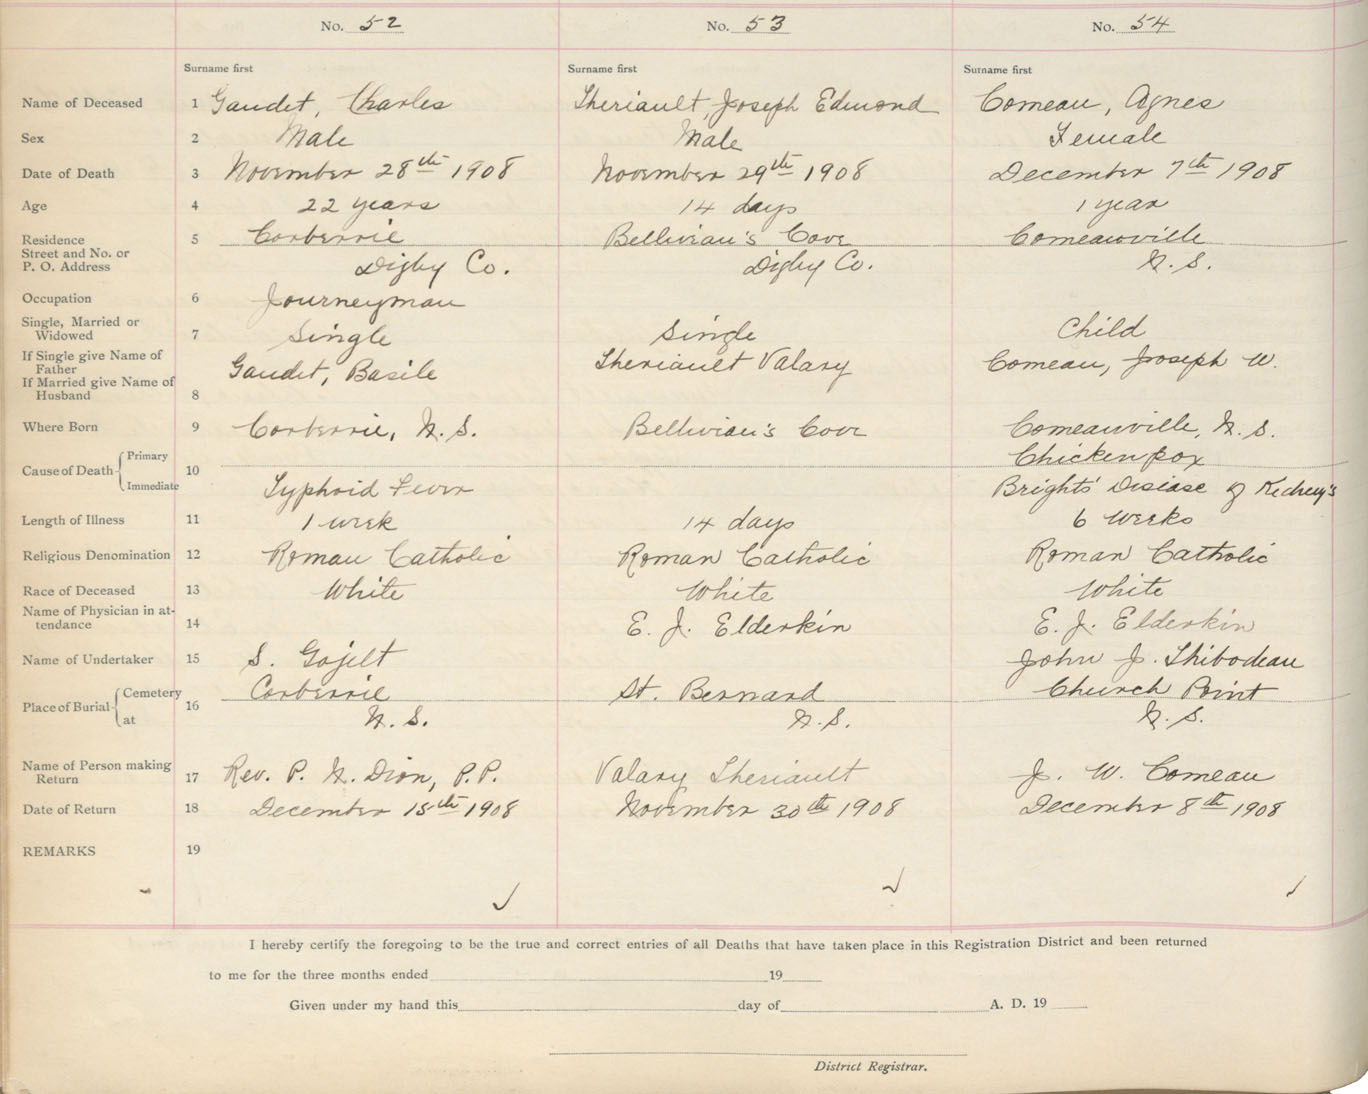 No. 52 No. 53 No. 54
Surname first Surname first Surname first
Name of Deceased 1 Gaudet, Charles Theriault, Joseph Edmond Comeau, Agnes
Sex 2 Male Male Female
Date of Death 3 November 28th 1908 November 29th 1908 December 7th 1908
Age 4 22 years 14 days 1 year
Residence 5 Corberrie Belliviau's Cove Comeauville
Street and No. or
P. O. Address Digby Co. Digby Co. N. S.
Occupation 6 Journeyman
Single, Married or
Widowed 7 Single Single Child
If Single give Name of
Father Gaudet, Basile Theriault Valary Comeau, Joseph W.
If Married give Name of
Husband 8
Where Born 9 Corberrie, N. S. Belliviau's Cove Comeauville, N. S.
Primary Chicken pox
Cause of Death 10
Immediate Typhoid Fever Brights' Disease of Kidney's
Length of Illness 11 1 week 14 days 6 weeks
Religious Denomination 12 Roman Catholic Roman Catholic Roman Catholic
Race of Deceased 13 White White White
Name of Physician in at-
tendance 14 E. J. Elderkin E. J. Elderkin
Name of Undertaker 15 S. John J. Thibodeau
Cemetery Corberrie St. Bernard Church Point
Place of Burial 16
at N. S. N. S. N. S.
Name of Person making
Return 17 Rev. P. N. Dion, P.P. Valary Theriault J. W. Comeau
Date of Return 18 December 15th 1908 November 30th 1908 December 8th 1908
REMARKS 19
I hereby certify the foregoing to be the true and correct entries of all Deaths that have taken place in this Registration District and been returned
to me for the three months ended 19
Given under my hand this day of A. D. 19
District Registrar.